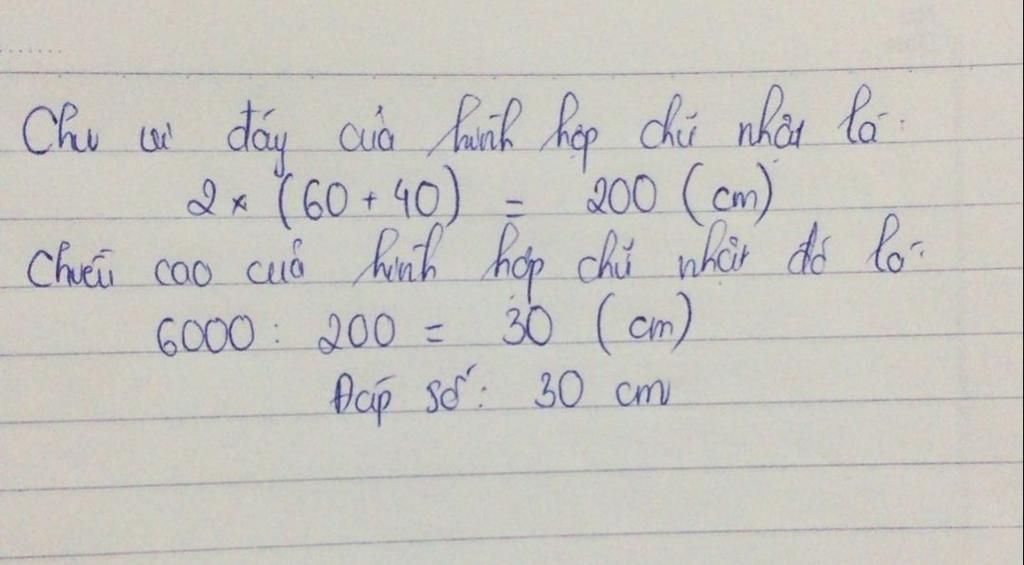 Chu vi đáy của hình hộp chữ nhật là:
2 x (60 + 40) = 200 (cm)
Chiều cao của hình hộp chữ nhật đó là:
6000 : 200 = 30 (cm)
Đáp số: 30 cm